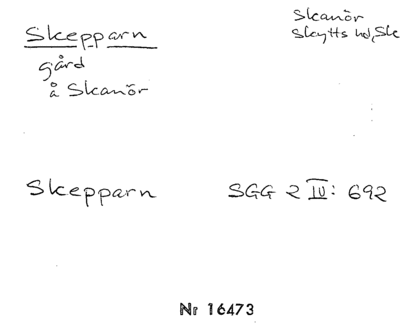 Skepparn
Skanör
Skytts hd, Sk
gård
å Skanör
Skepparn SGG 2 IV: 692
Nr 16473